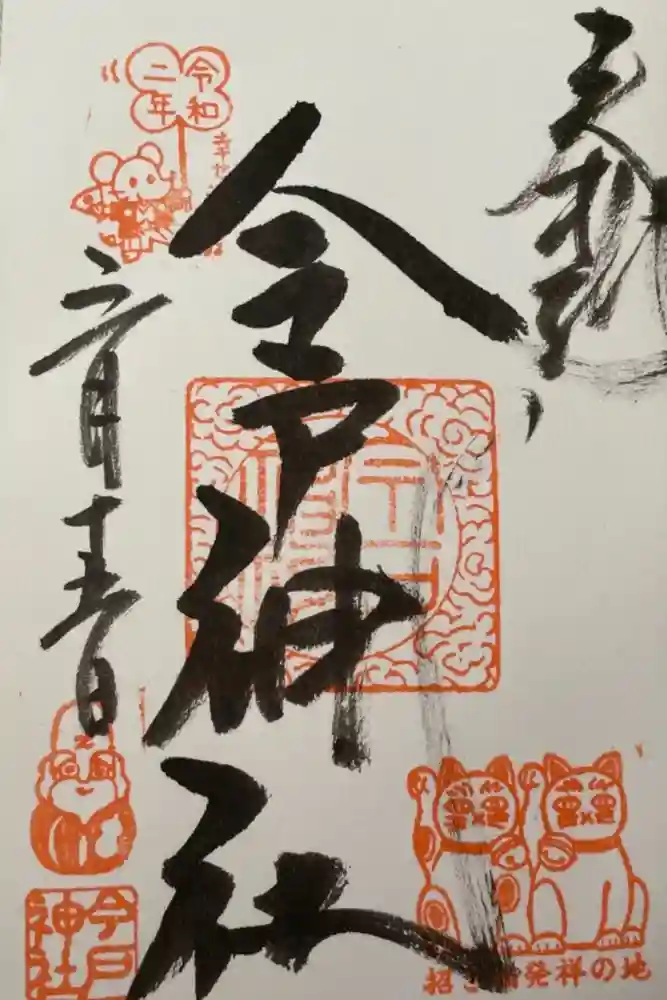 奉拝
今戸神社
令和
二年
六月十五日
今戸
神社
招き猫発祥の地